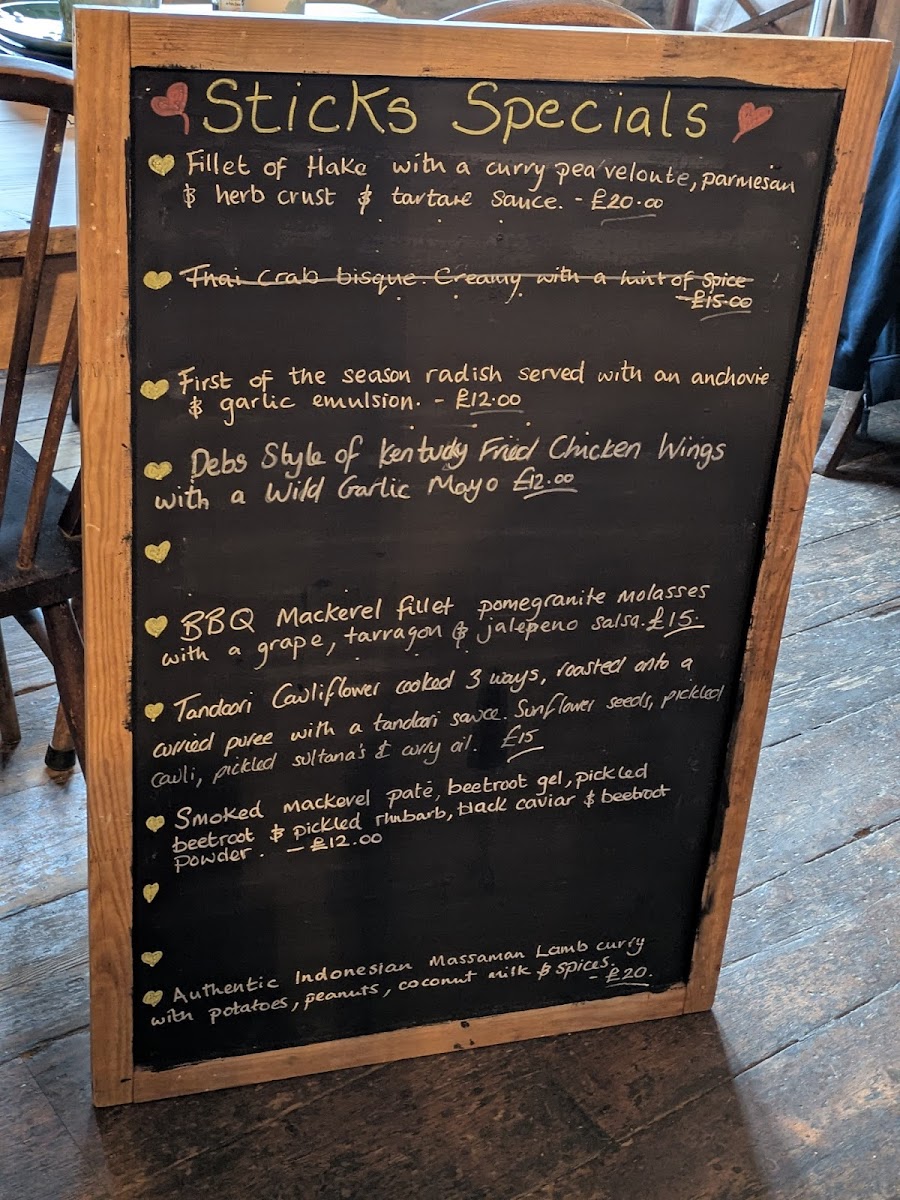 Sticks Specials
Fillet of Hake with a curry pea veloute, parmesan
& herb crust & tartare sauce. - £20.00
Thai Crab bisque. Creamy with a hint of spice
- £15.00
First of the season radish served with an anchovie
& garlic emulsion. - £12.00
Debs Style of Kentucky Fried Chicken Wings
with a Wild Garlic Mayo £12.00
BBQ Mackerel fillet pomegranite molasses
with a grape, tarragon & jalepeno salsa. £15.
Tandoori Cauliflower cooked 3 ways, roasted onto a
curried puree with a tandoori sauce. Sunflower seeds, pickled
cauli, pickled sultana's & curry oil. £15
Smoked mackerel paté, beetroot gel, pickled
beetroot & pickled rhubarb, black caviar & beetroot
powder. - £12.00
Authentic Indonesian Massaman Lamb curry
with potatoes, peanuts, coconut milk & spices. - £20.